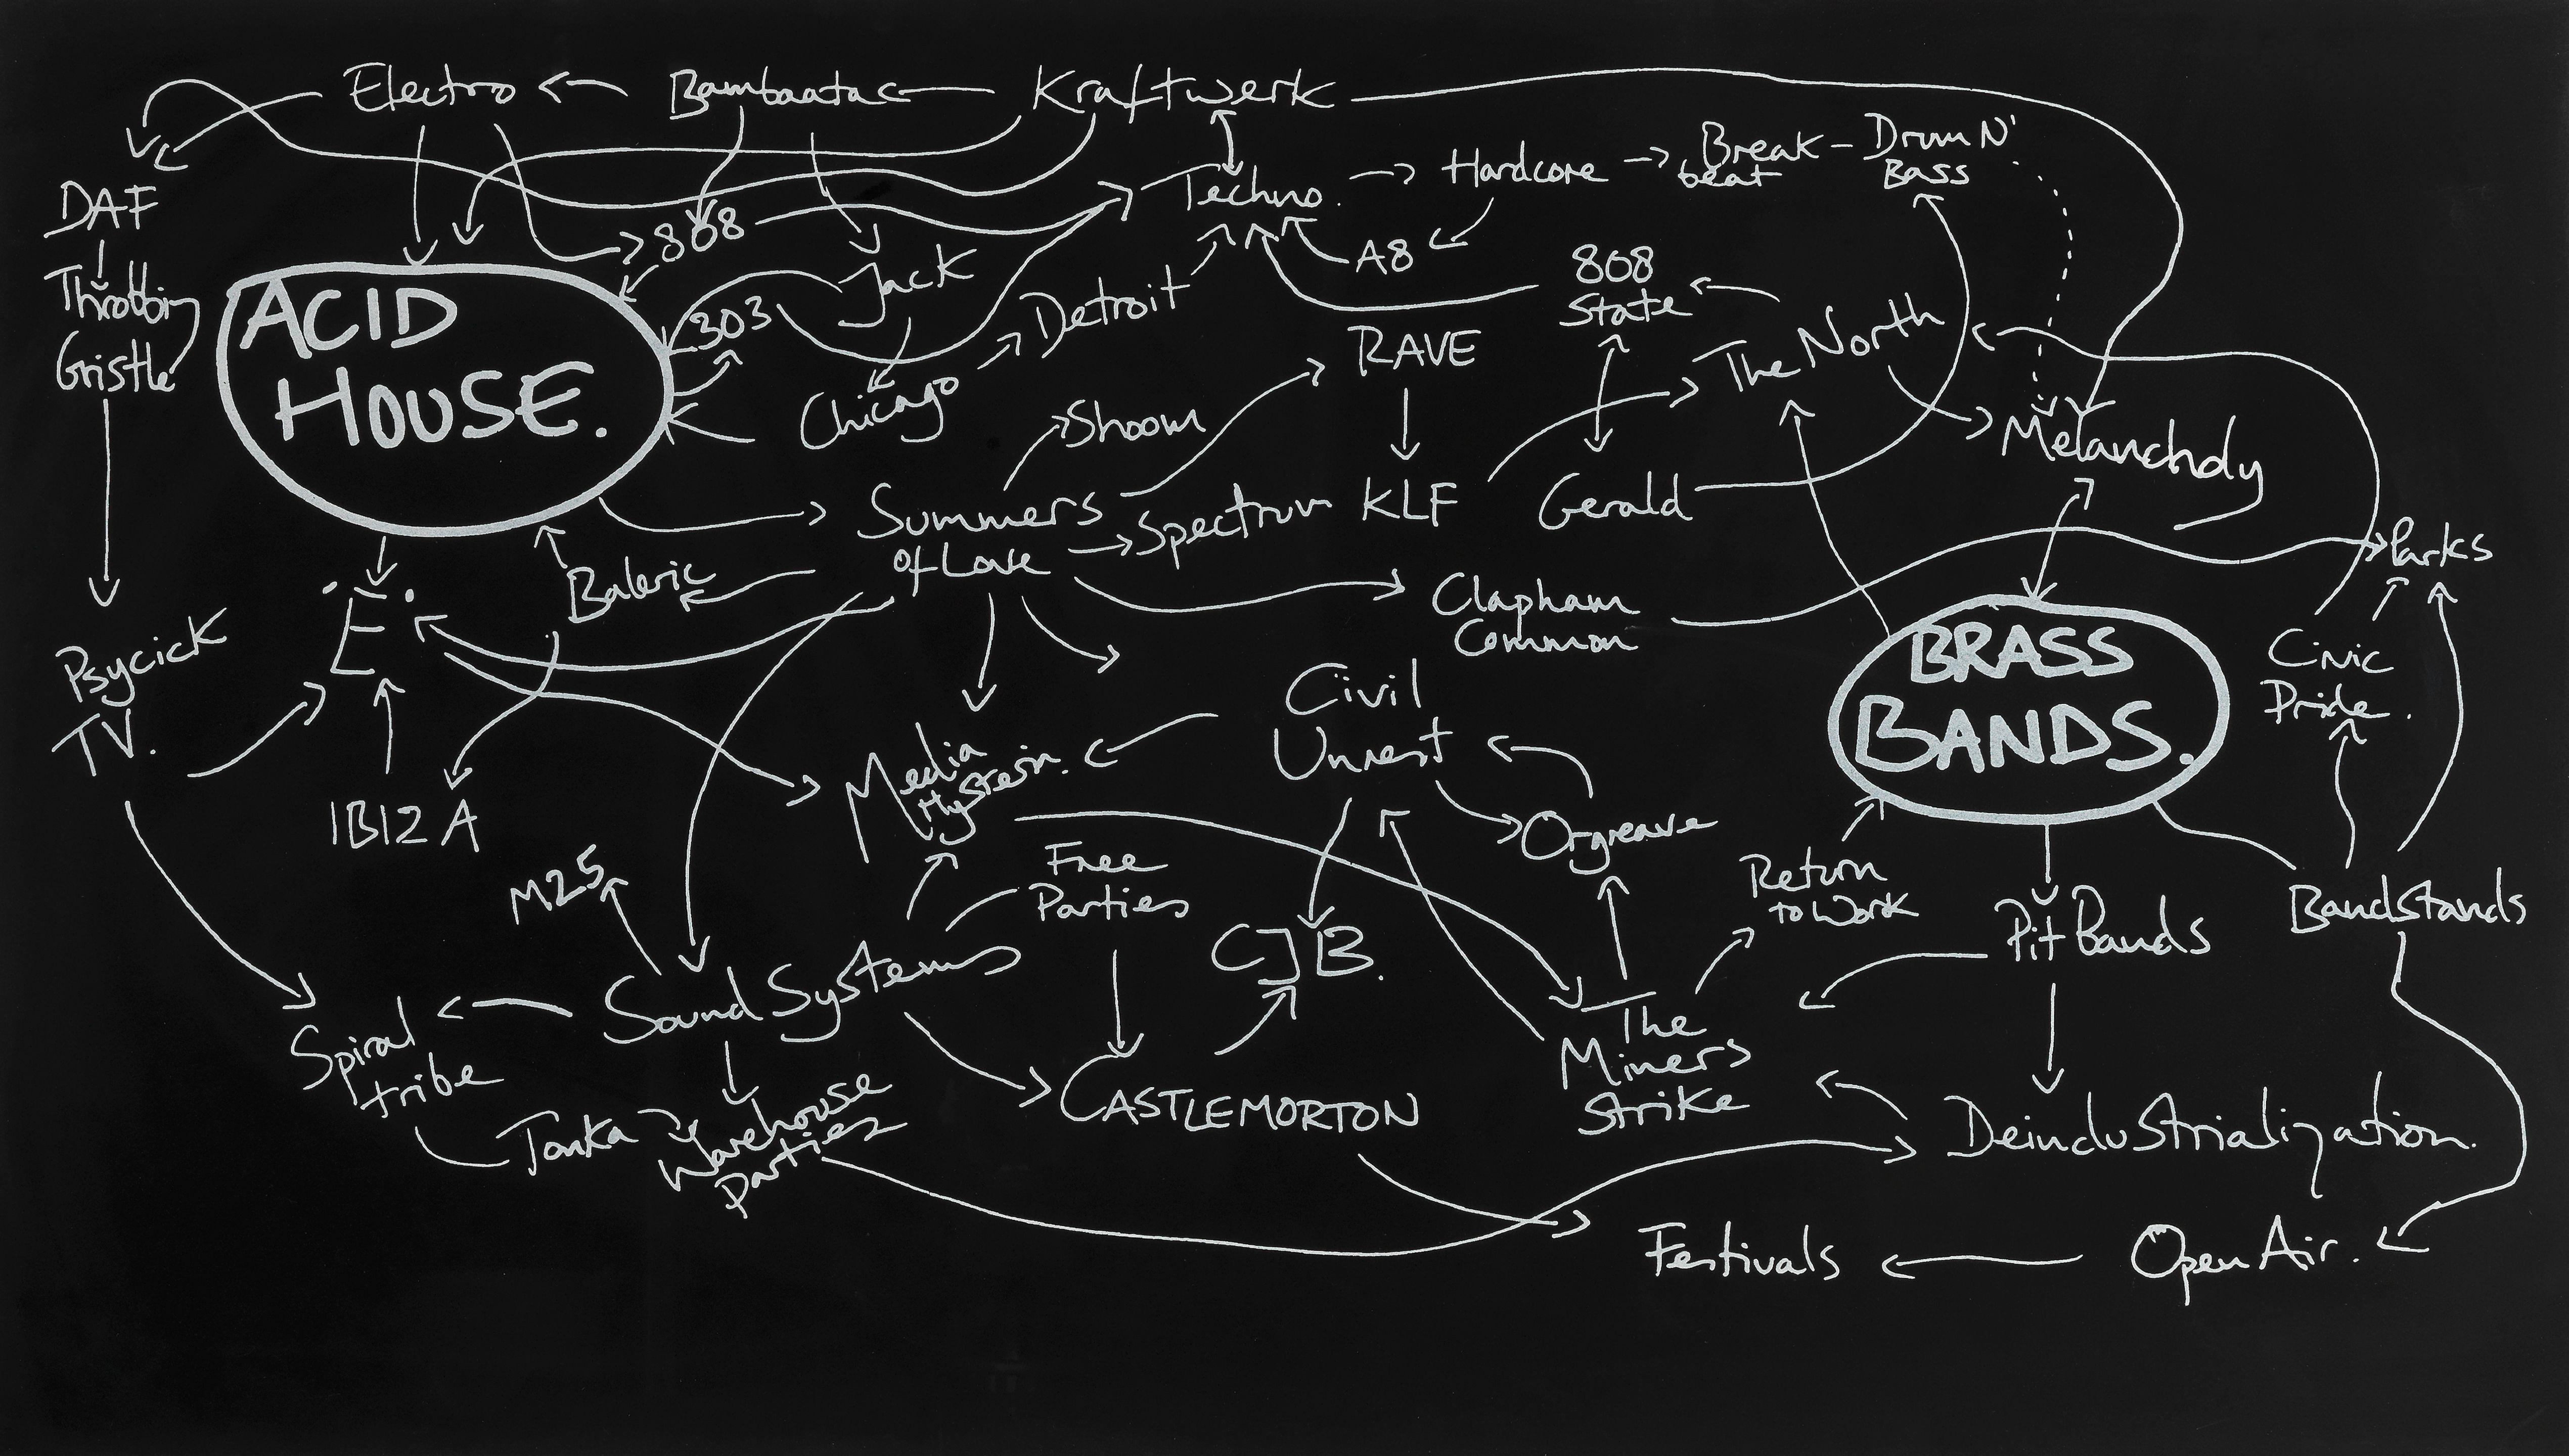 Electro
Bambaataa
Kraftwerk
DAF
Throbbing
Gristle
808
Jack
Techno.
Hardcore
Break
beat
Drum N'
Bass
A8
808
State
ACID
HOUSE.
303
Detroit
Chicago
RAVE
The North
Shoom
Melancholy
Summers
of Love
Spectrum
KLF
Gerald
Parks
Baleric
'E'
Clapham
Common
BRASS
BANDS.
Civic
Pride.
Psycick
TV.
IBIZA
Media
Hysteria.
Civil
Unrest
Orgreave
M25
Free
Parties
Return
to Work
Pit Bands
Bandstands
CJB.
Sound Systems
Spiral
tribe
Tonka
Warehouse
Parties
CASTLEMORTON
The
Miners
Strike
Deindustrialization.
Festivals
Open Air.